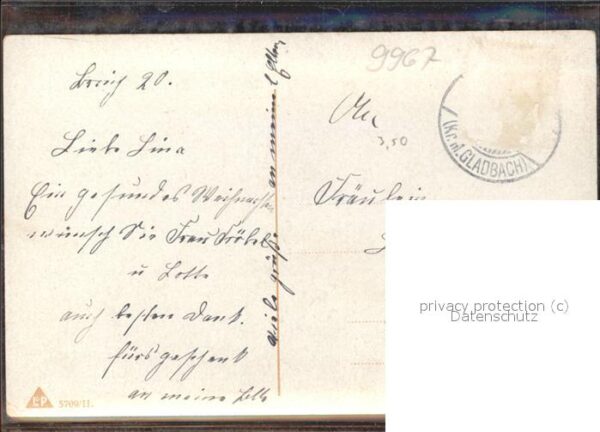 20.
Liebe Lina
Ein gesundes Weihnachten
wünsch Die Frau
u Lotte
auch besten Dank.
fürs geschenk
an meine
viele grüße an meine
An
Fräulein
9967
3,50
(Kr. M. GLADBACH)
EP
5709/II.
privacy protection (c)
Datenschutz